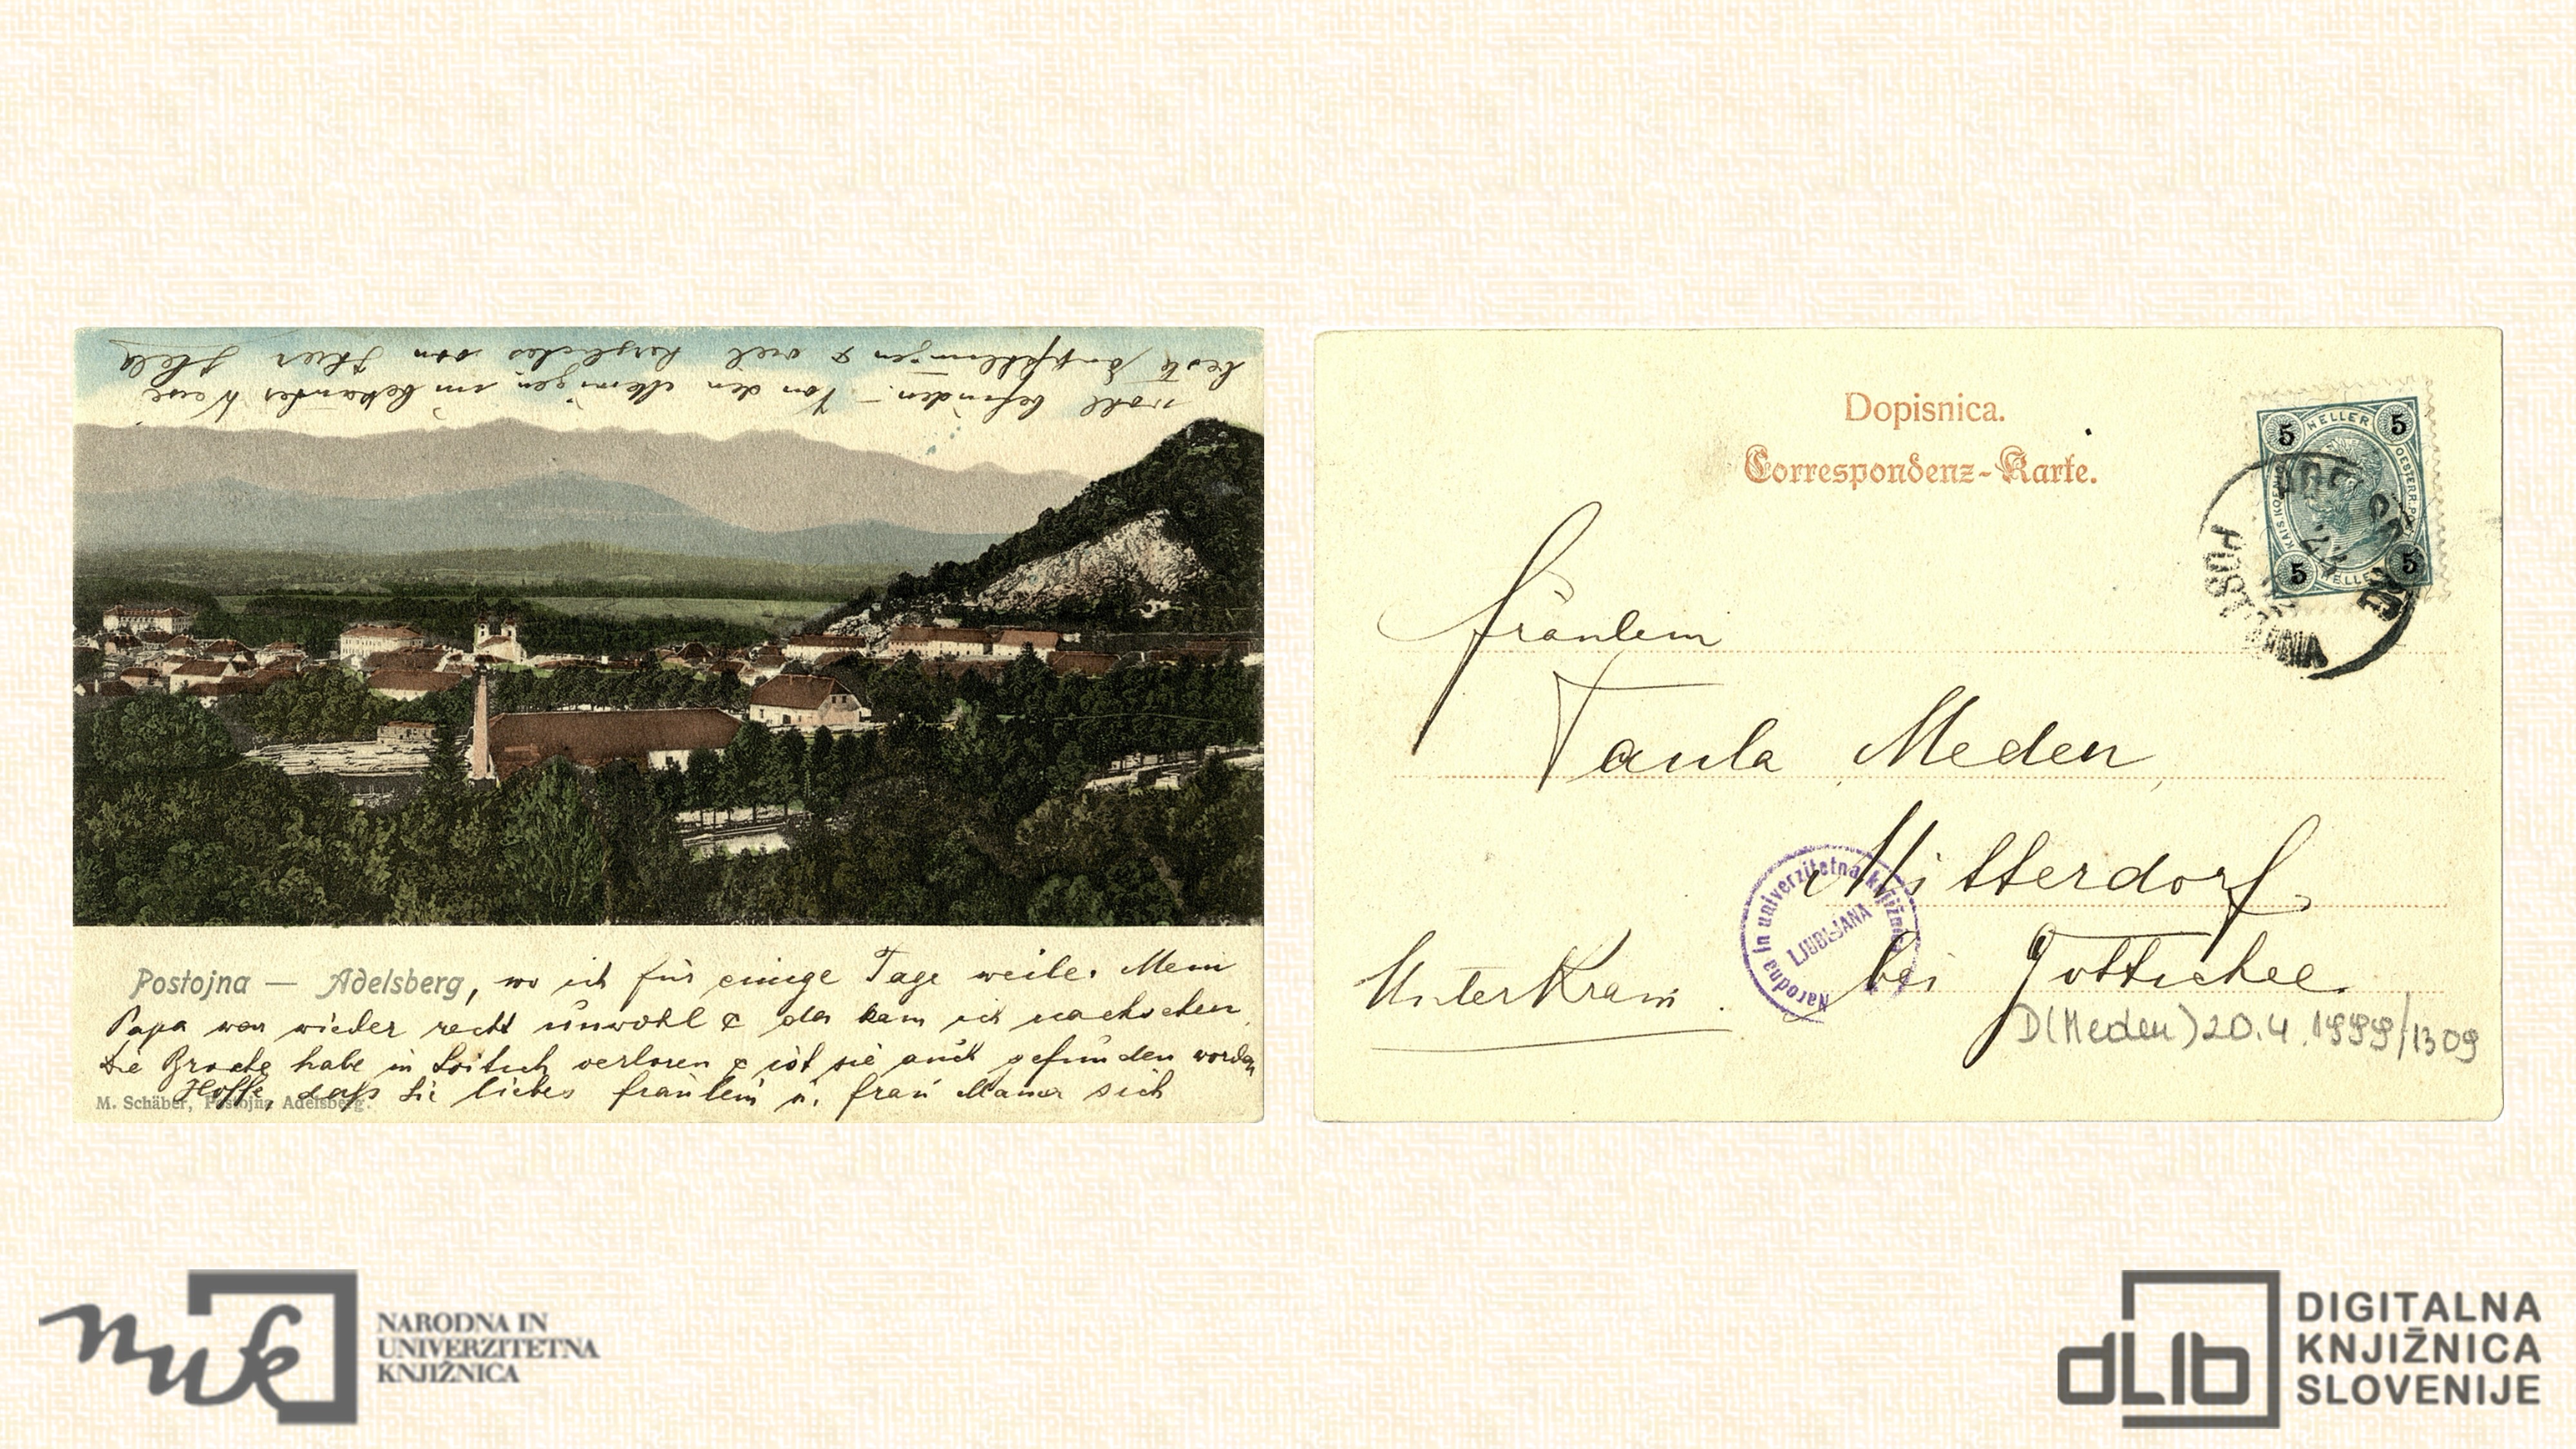 Postojna — Adelsberg, wo ich für einige Tage weile. Mein
Papa war wieder recht unwohl & da kam ich nachsehen.
Die Broche habe in Loitsch verloren & ist sie auch gefunden worden
Hoffe, dass Sie liebes Fräulein u. Frau Mama sich
M. Schäber, Postojna Adelsberg.
wohl befinden. – Von den
beste Empfehlungen & viel herzliches von Ihrer
Dopisnica.
Correspondenz-Karte.
5 HELLER 5
KAIS. KOENIGL. OESTERR. POST
5 HELLER 5
Fräulein
Paula Meden,
Mitterdorf
bei Gottschee.
Unterkrain.
Narodna in univerzitetna knjižnica
LJUBLJANA
D(Meden) 20.4.1999/1309
nuk
NARODNA IN
UNIVERZITETNA
KNJIŽNICA
dLib
DIGITALNA
KNJIŽNICA
SLOVENIJE